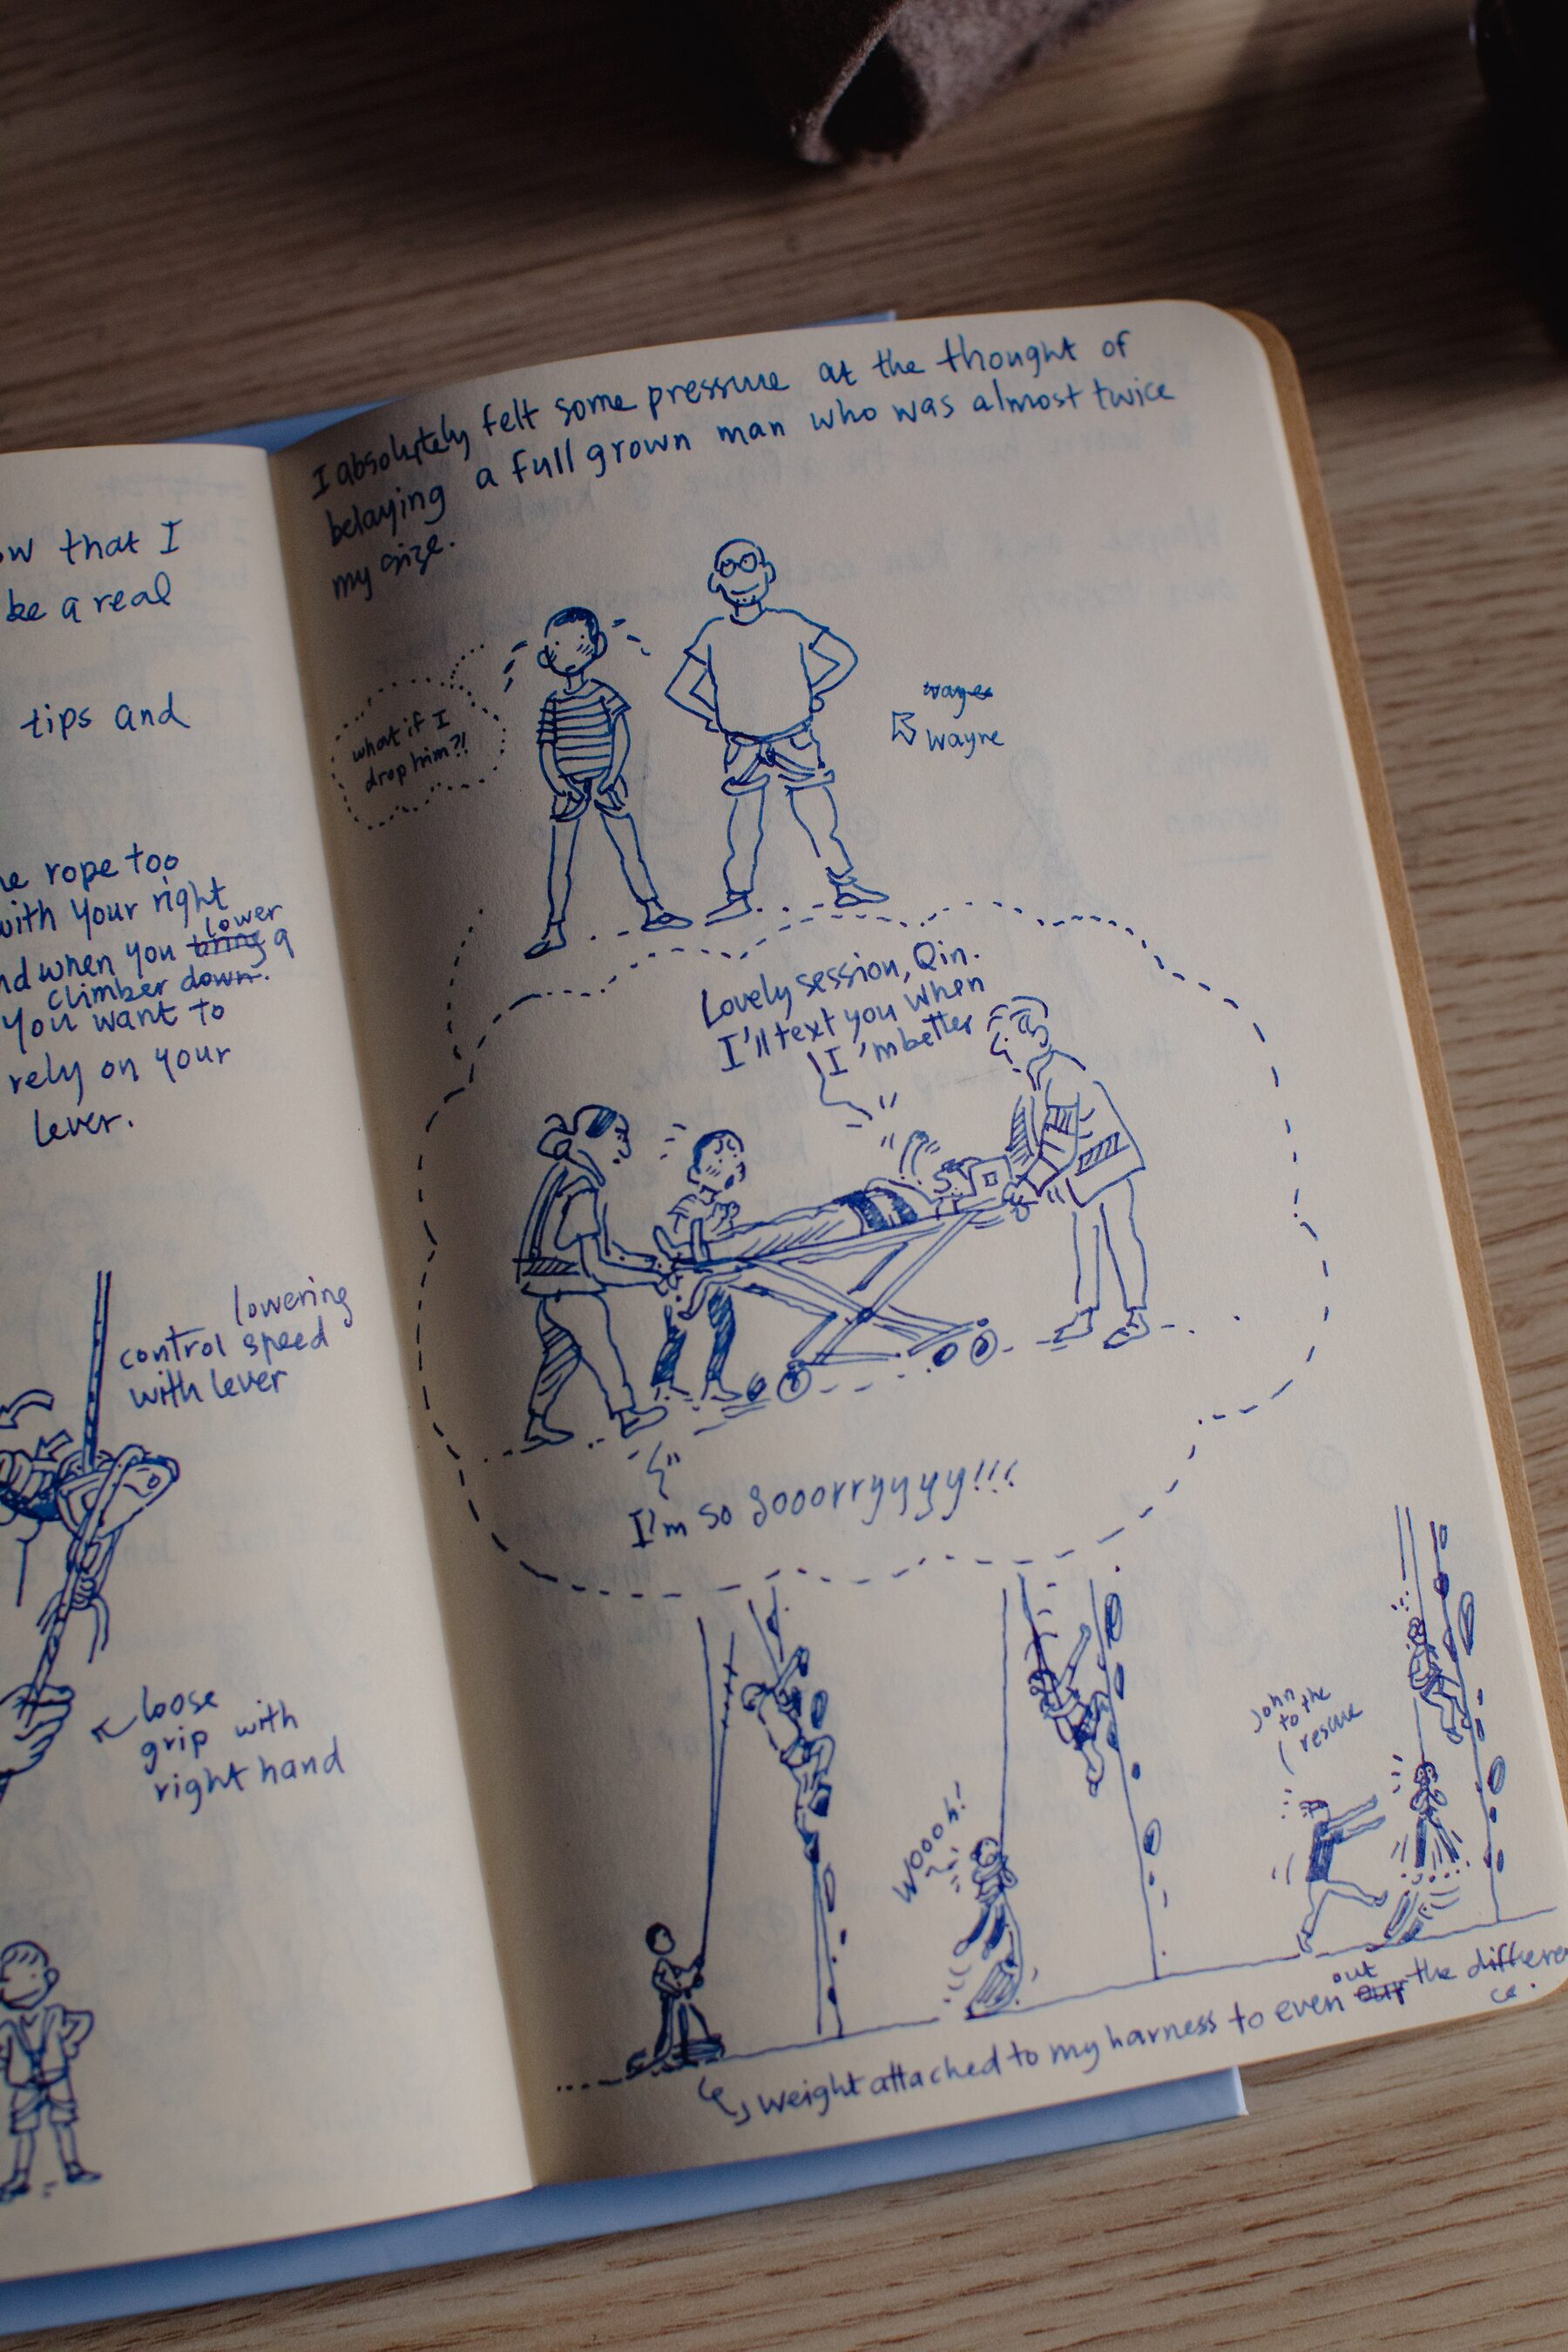 that I
be a real
tips and
rope too
with your right
when you bring lower a
climber down.
you want to
rely on your
lever.
lowering
control speed
with lever
loose
grip with
right hand
I absolutely felt some pressure at the thought of
belaying a full grown man who was almost twice
my size.
what if I
drop him?!
wayne
Lovely session, Qin.
I'll text you when
I'm better
I'm so sooorryyyy!!!
Woooh!
John
to the
rescue
weight attached to my harness to even out the differen
ce.